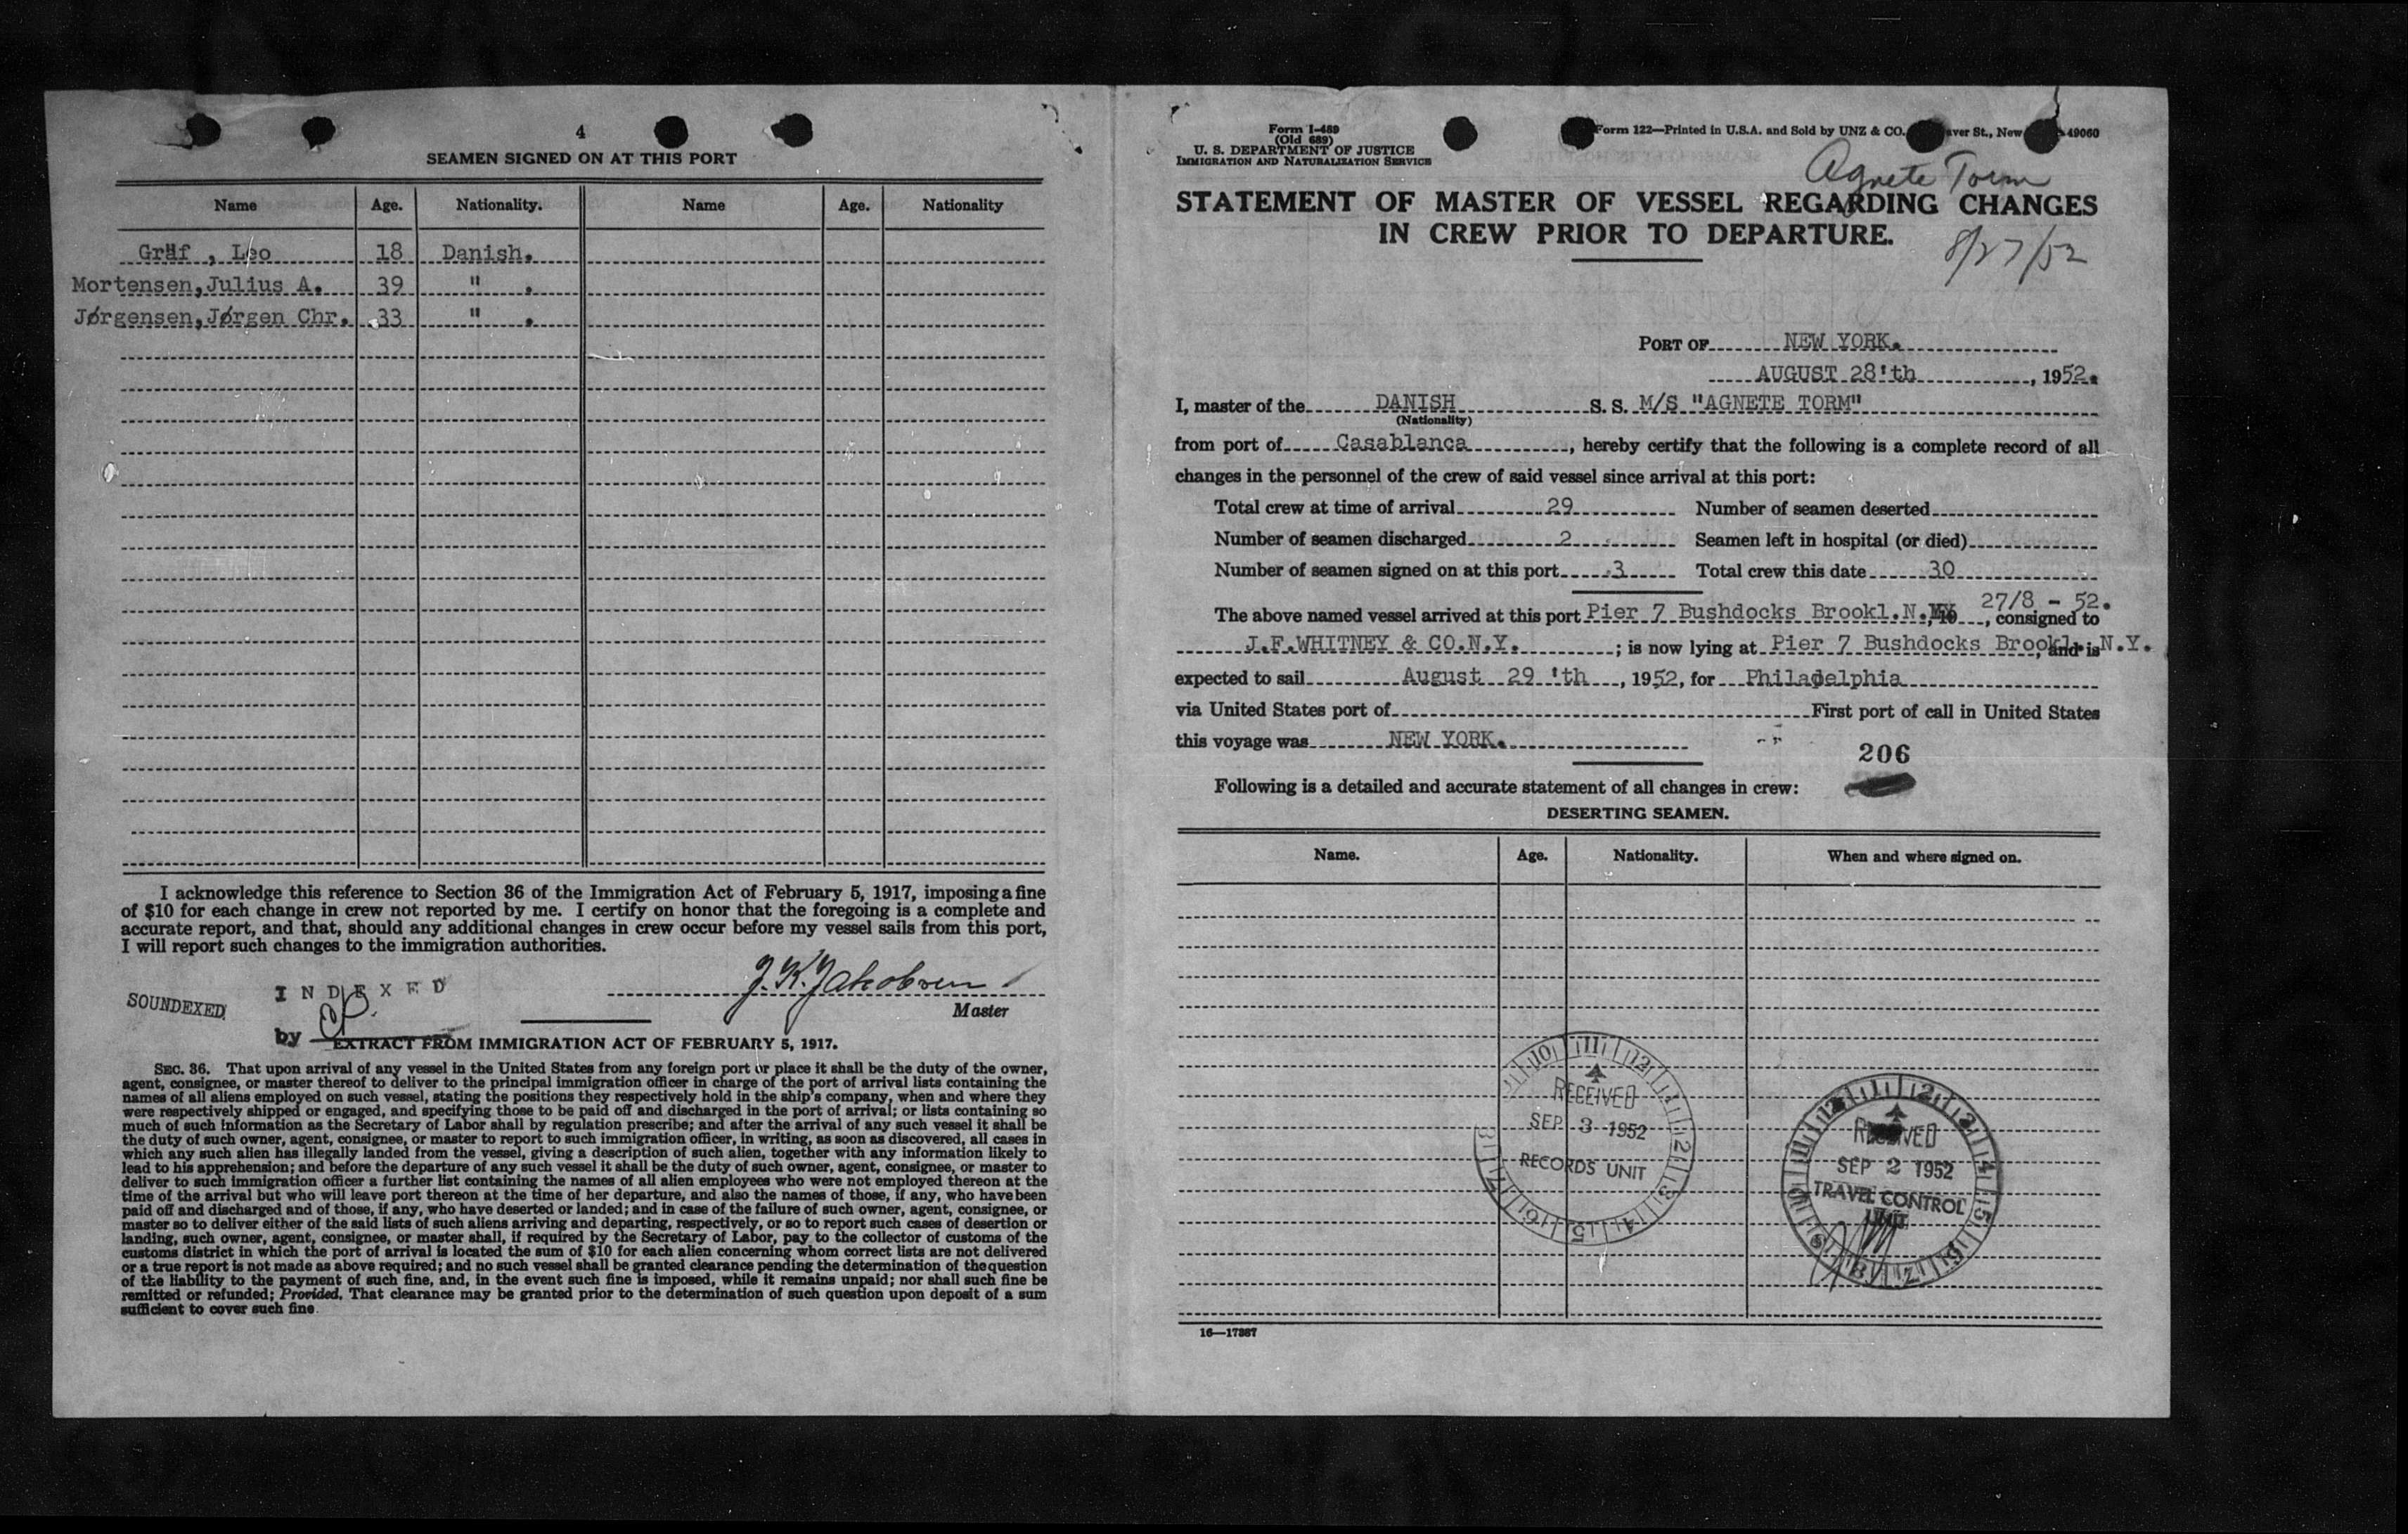 4
SEAMEN SIGNED ON AT THIS PORT
Name Age. Nationality. Name Age. Nationality
Gräf , Leo 18 Danish.
Mortensen,Julius A. 39 " .
Jørgensen,Jørgen Chr. 33 " .
I acknowledge this reference to Section 36 of the Immigration Act of February 5, 1917, imposing a fine
of $10 for each change in crew not reported by me. I certify on honor that the foregoing is a complete and
accurate report, and that, should any additional changes in crew occur before my vessel sails from this port,
I will report such changes to the immigration authorities.
J. K. Jakobsen
Master
SOUNDEXED
INDEXED
by
EXTRACT FROM IMMIGRATION ACT OF FEBRUARY 5, 1917.
SEC. 36. That upon arrival of any vessel in the United States from any foreign port or place it shall be the duty of the owner,
agent, consignee, or master thereof to deliver to the principal immigration officer in charge of the port of arrival lists containing the
names of all aliens employed on such vessel, stating the positions they respectively hold in the ship's company, when and where they
were respectively shipped or engaged, and specifying those to be paid off and discharged in the port of arrival; or lists containing so
much of such information as the Secretary of Labor shall by regulation prescribe; and after the arrival of any such vessel it shall be
the duty of such owner, agent, consignee, or master to report to such immigration officer, in writing, as soon as discovered, all cases in
which any such alien has illegally landed from the vessel, giving a description of such alien, together with any information likely to
lead to his apprehension; and before the departure of any such vessel it shall be the duty of such owner, agent, consignee, or master to
deliver to such immigration officer a further list containing the names of all alien employees who were not employed thereon at the
time of the arrival but who will leave port thereon at the time of her departure, and also the names of those, if any, who have been
paid off and discharged and of those, if any, who have deserted or landed; and in case of the failure of such owner, agent, consignee, or
master so to deliver either of the said lists of such aliens arriving and departing, respectively, or so to report such cases of desertion or
landing, such owner, agent, consignee, or master shall, if required by the Secretary of Labor, pay to the collector of customs of the
customs district in which the port of arrival is located the sum of $10 for each alien concerning whom correct lists are not delivered
or a true report is not made as above required; and no such vessel shall be granted clearance pending the determination of the question
of the liability to the payment of such fine, and, in the event such fine is imposed, while it remains unpaid; nor shall such fine be
remitted or refunded; Provided, That clearance may be granted prior to the determination of such question upon deposit of a sum
sufficient to cover such fine.
Form I-489
(Old 689)
U. S. DEPARTMENT OF JUSTICE
IMMIGRATION AND NATURALIZATION SERVICE
Form 122—Printed in U.S.A. and Sold by UNZ & CO. aver St., New 49060
Agnete Torm
STATEMENT OF MASTER OF VESSEL REGARDING CHANGES
IN CREW PRIOR TO DEPARTURE.
8/27/52
PORT OF NEW YORK.
AUGUST 28'th , 1952.
I, master of the DANISH S. S. M/S "AGNETE TORM"
(Nationality)
from port of Casablanca , hereby certify that the following is a complete record of all
changes in the personnel of the crew of said vessel since arrival at this port:
Total crew at time of arrival 29 Number of seamen deserted
Number of seamen discharged 2 Seamen left in hospital (or died)
Number of seamen signed on at this port 3 Total crew this date 30
27/8 - 52.
The above named vessel arrived at this port Pier 7 Bushdocks Brookl.N.Y. , consigned to
J.F.WHITNEY & CO.N.Y. ; is now lying at Pier 7 Bushdocks Brookl. , and is N.Y.
expected to sail August 29 'th , 1952, for Philadelphia
via United States port of First port of call in United States
this voyage was NEW YORK.
206
Following is a detailed and accurate statement of all changes in crew:
DESERTING SEAMEN.
Name. Age. Nationality. When and where signed on.
RECEIVED
SEP 3 1952
RECORDS UNIT
RECEIVED
SEP 2 1952
TRAVEL CONTROL
UNIT
16—17387